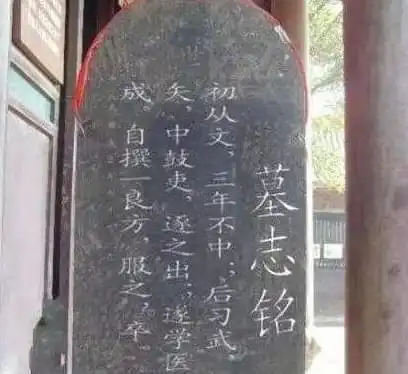 墓志铭
初从文，三年不中；后习武，
矢，中鼓吏，逐之出；遂学医
成，自撰一良方，服之，卒